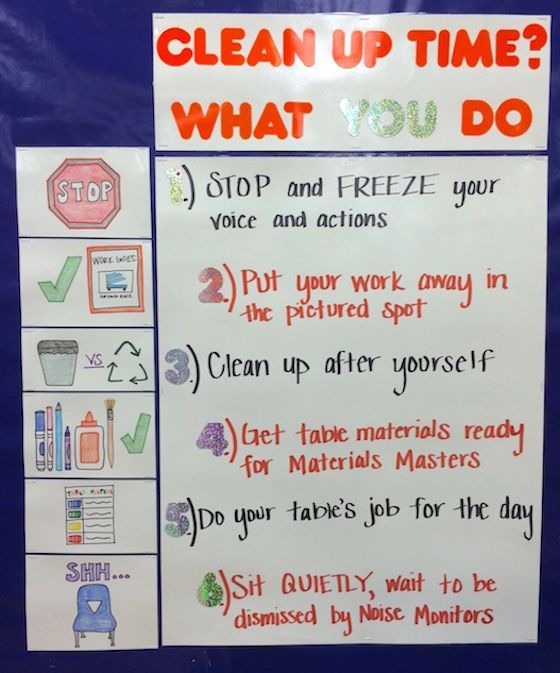 CLEAN UP TIME?
WHAT YOU DO
STOP
1.) STOP and FREEZE your
voice and actions
WORK GOES
2.) Put your work away in
the pictured spot
VS
3.) Clean up after yourself
4.) Get table materials ready
for Materials Masters
5.) Do your table's job for the day
SHH...
6.) Sit QUIETLY, wait to be
dismissed by Noise Monitors